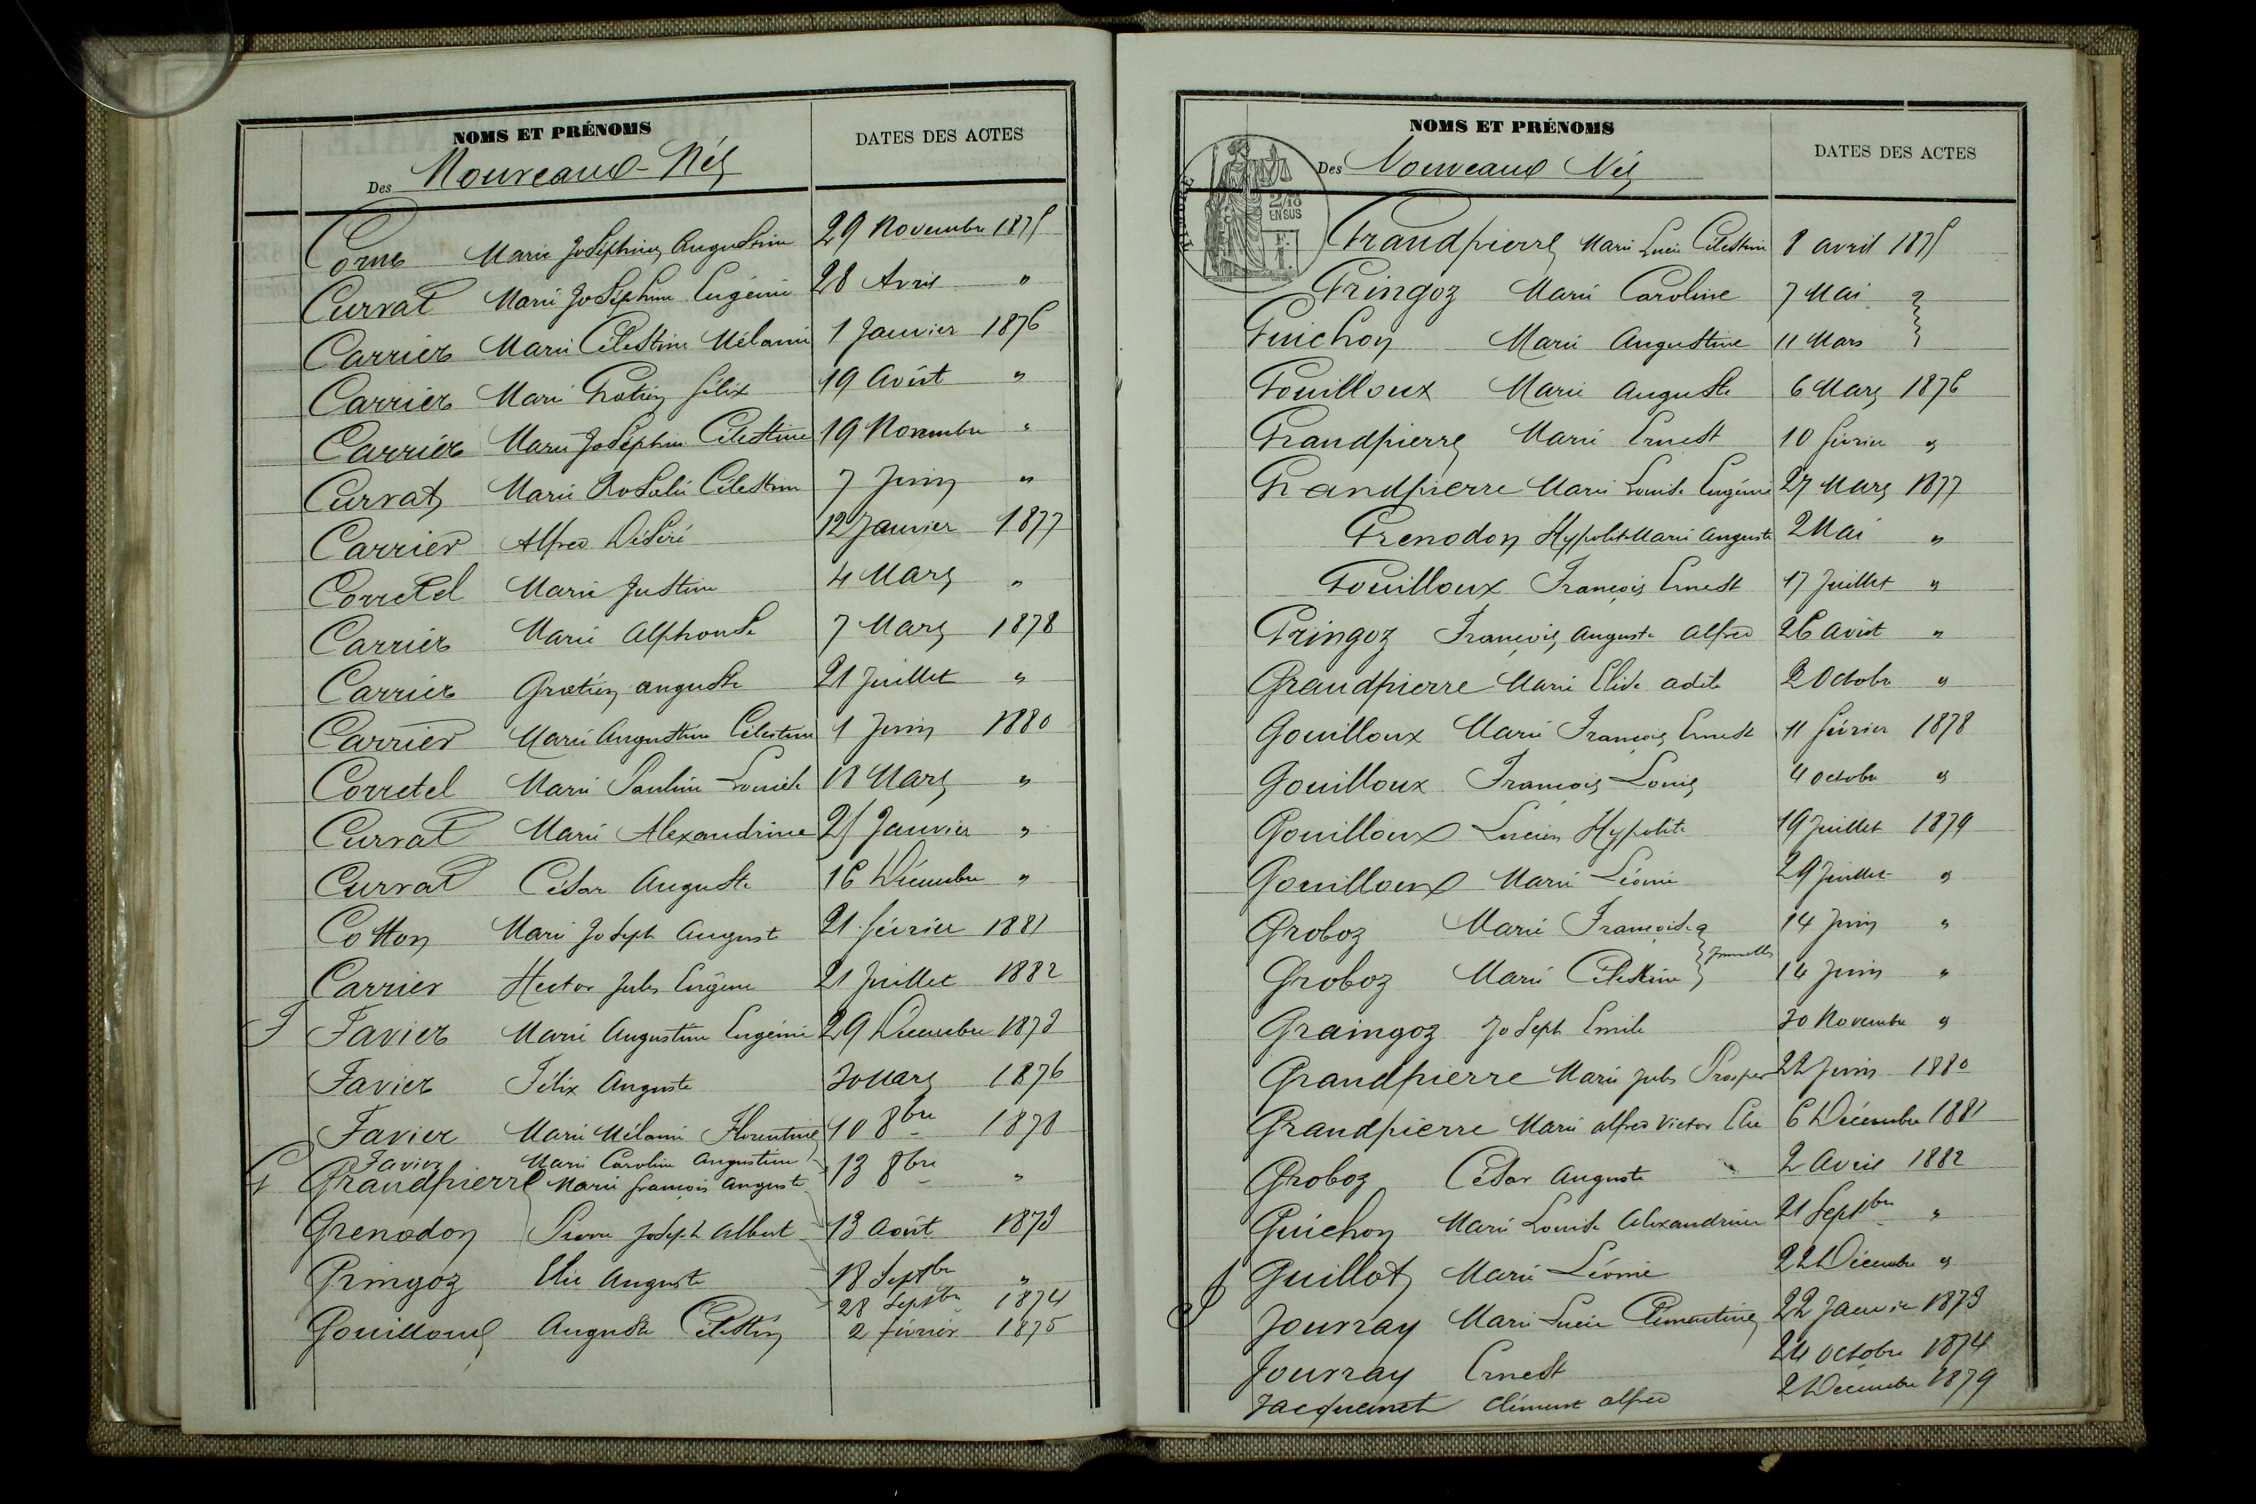 NOMS ET PRÉNOMS
DATES DES ACTES
Des Nouveaux-Nés
Corne Marie Joséphine Augustine 29 Novembre 1875
Curvat Marie Joséphine Eugénie 28 Avril "
Carrier Marie Célestine Mélanie 1 Janvier 1876
Carrier Marie Gratien félix 19 Août "
Carrier Marie Joséphine Célestine 19 Novembre "
Curvat Marie Rosalie Célestine 7 Juin "
Carrier Alfred Désiré 12 Janvier 1877
Corretel Marie Justine 4 Mars "
Carrier Marie Alphonse 7 Mars 1878
Carrier Gratien auguste 21 Juillet "
Carrier Marie Augustine Célestine 1 Juin 1880
Corretel Marie Pauline Louise 11 Mars "
Curvat Marie Alexandrine 25 Janvier "
Curvat César Auguste 16 Décembre "
Cotton Marie Joseph August 21 février 1881
Carrier Hector Jules Eugène 21 Juillet 1882
F Favier Marie Augustine Eugénie 29 Décembre 1873
Favier Félix Auguste 30 Mars 1876
Favier Marie Mélanie Florentine 10 8bre 1878
Favier Marie Caroline Augustine 13 8bre "
G Grandpierre Marie françois Auguste
Grenodon Pierre Joseph Albert 13 Août 1873
Gringoz Elie Auguste 18 Septbre "
28 Septbre 1874
Gouilloux Auguste Célestin 2 février 1875
NOMS ET PRÉNOMS
DATES DES ACTES
Des Nouveaux Nés
2/10 EN SUS
Grandpierre Marie Lucie Célestine 8 avril 1875
Gringoz Marie Caroline 7 Mai
Guichon Marie Augustine 11 Mars
Gouilloux Marie Auguste 6 Mars 1876
Grandpierre Marie Ernest 10 février "
Grandpierre Marie Louise Eugénie 27 Mars 1877
Grenodon Hypolite Marie Auguste 2 Mai "
Gouilloux François Ernest 17 Juillet "
Gringoz François Auguste Alfred 26 Août "
Grandpierre Marie Elise adile 2 Octobre "
Gouilloux Marie François Ernest 11 février 1878
Gouilloux François Louis 4 octobre "
Gouilloux Lucien Hypolite 19 Juillet 1879
Gouilloux Marie Léonie 29 Juillet "
Groboz Marie Françoise 14 Juin "
Jumelles
Groboz Marie Célestine 14 Juin "
Graingoz Joseph Emile 30 Novembre "
Grandpierre Marie Jules Prosper 22 Juin 1880
Grandpierre Marie alfred Victor Elie 6 Décembre 1881
Groboz César Auguste 2 Avril 1882
Guichon Marie Louise Alexandrine 21 Septbre "
Guillot Marie Léonie 22 Décembre "
J Journay Marie Lucie Clémentine 22 Janvier 1873
Journay Ernest 24 octobre 1874
Jacquemet Clément alfred 2 Décembre 1879